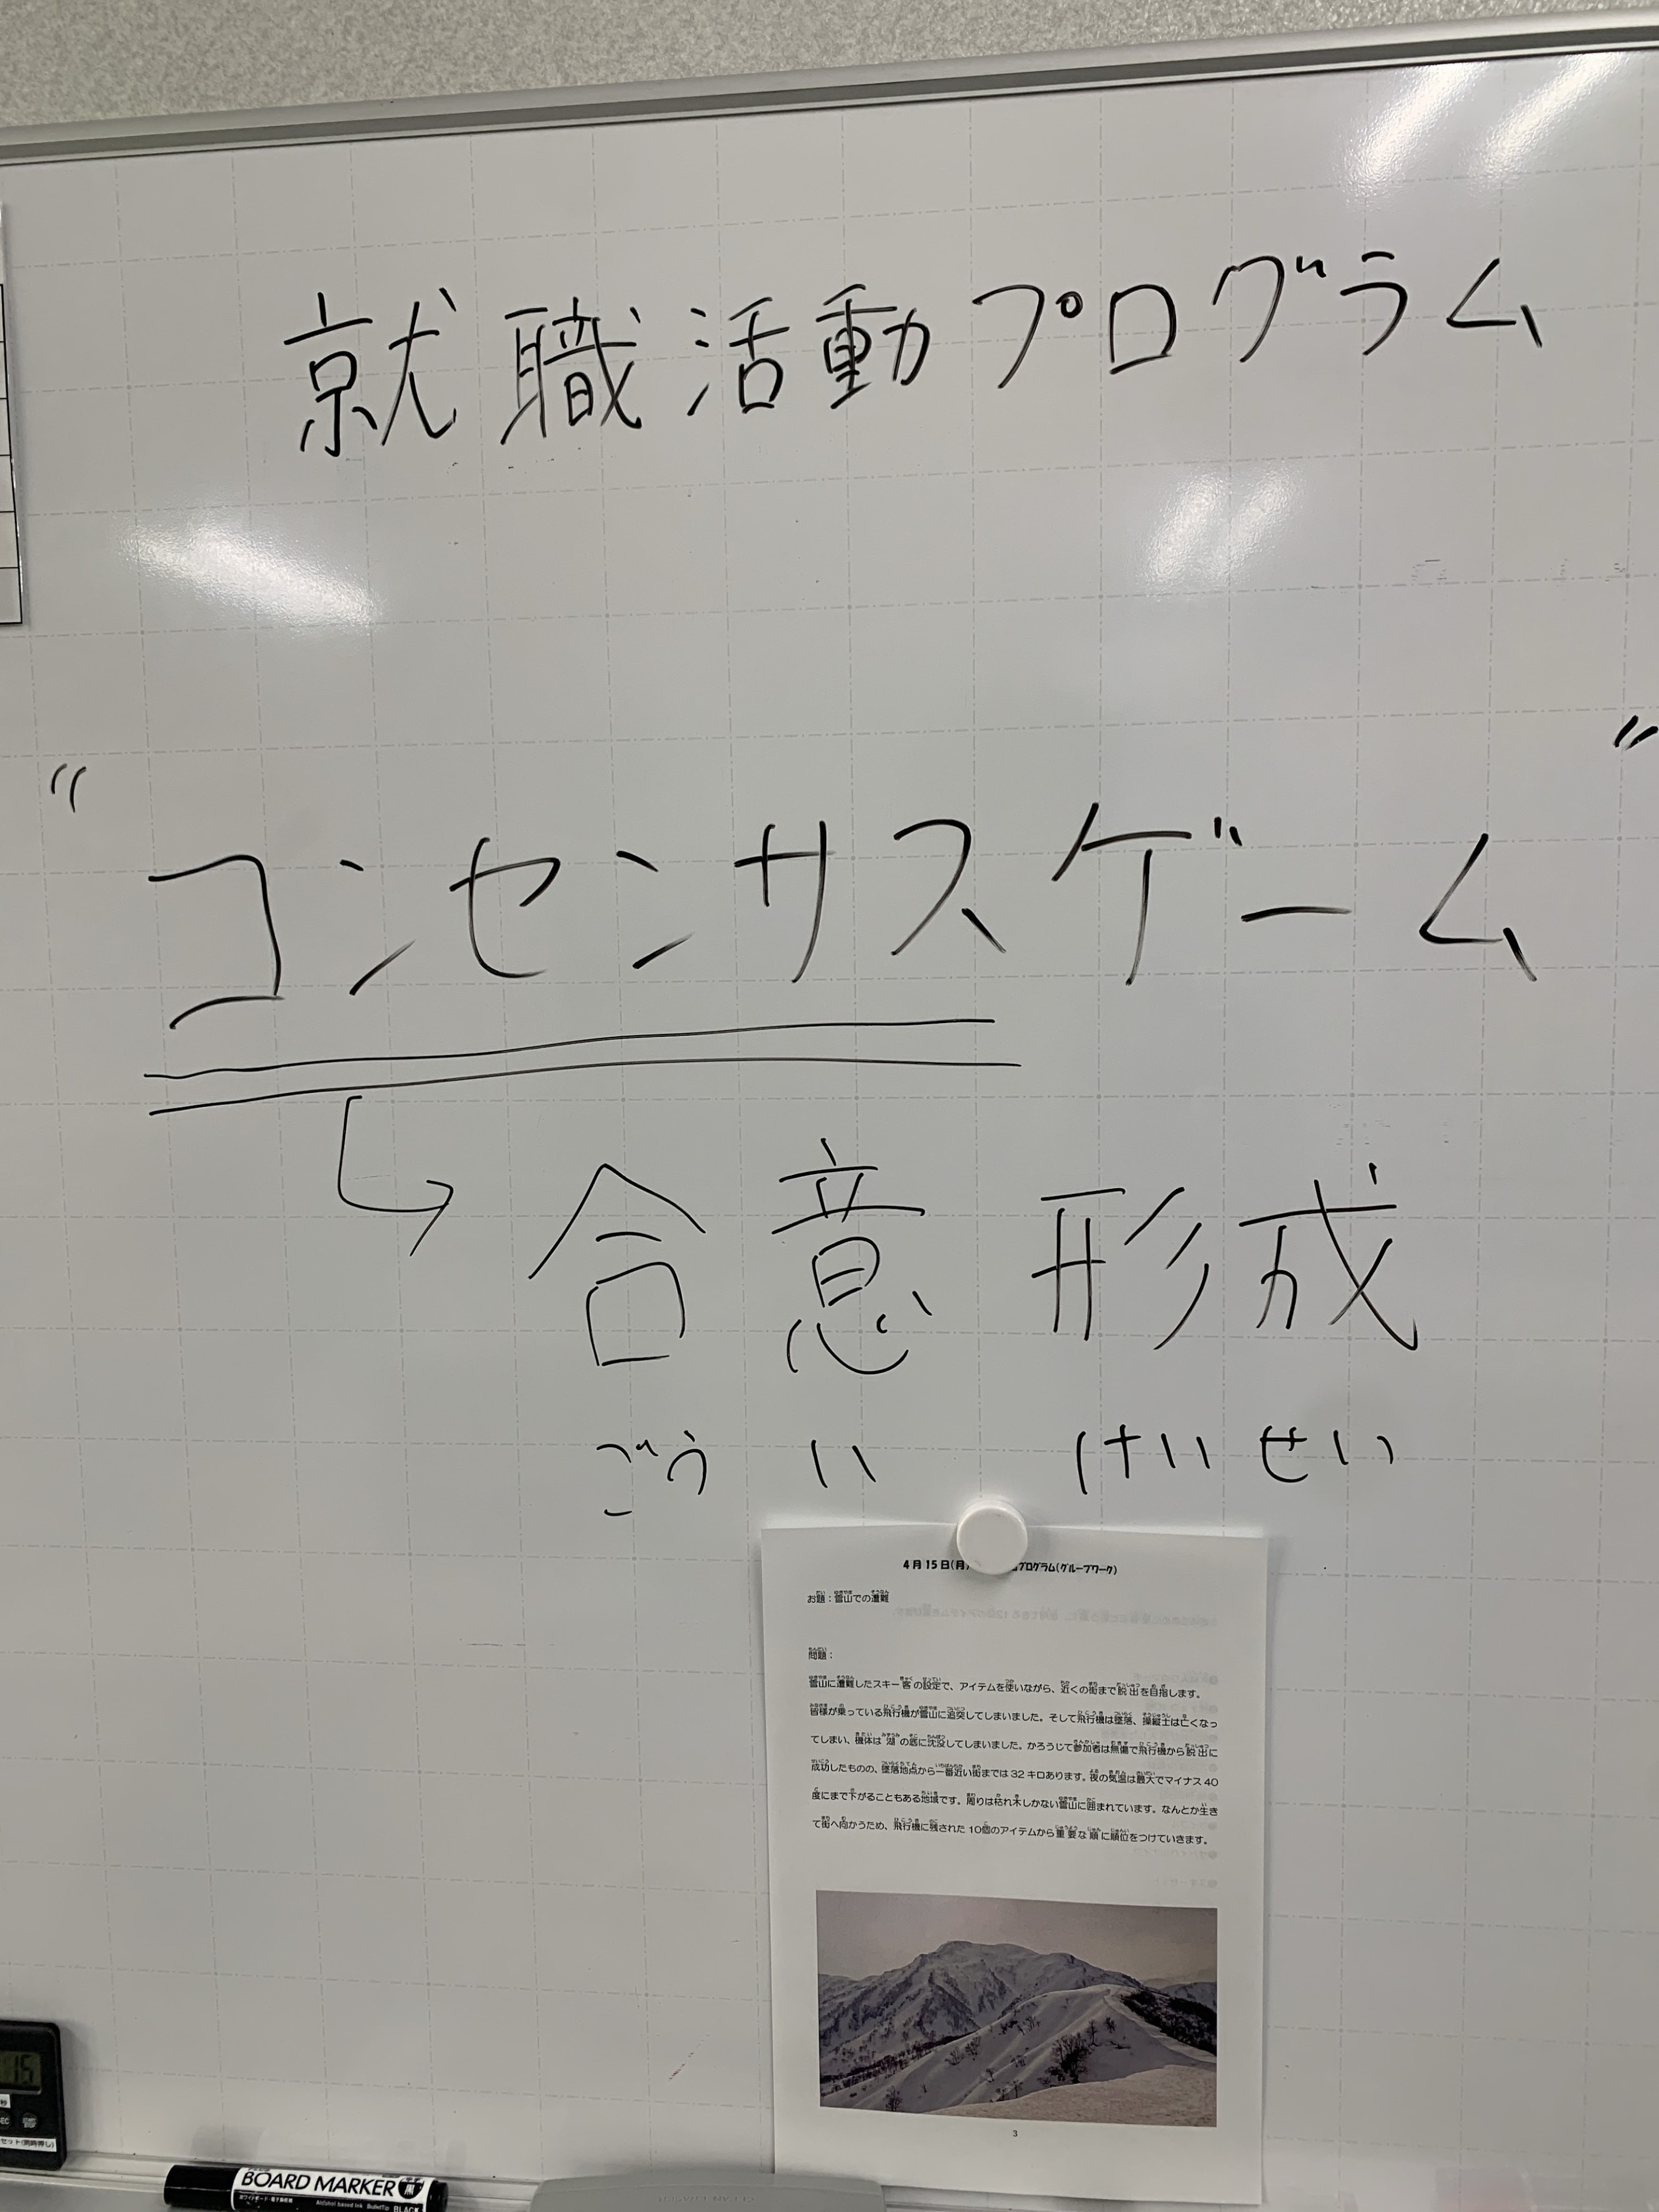 就職活動プログラム
"コンセンサスゲーム"
合意形成
ごうい けいせい
4月15日(月) プログラム(グループワーク)
お題：雪山での遭難
問題：
雪山に遭難したスキー客の設定で、アイテムを使いながら、近くの街まで脱出を目指します。
皆様が乗っている飛行機が雪山に追突してしまいました。そして飛行機は墜落、操縦士は亡くなっ
てしまい、機体は湖の底に沈没してしまいました。かろうじて参加者は無傷で飛行機から脱出に
成功したものの、墜落地点から一番近い街までは32キロあります。夜の気温は最大でマイナス40
度にまで下がることもある地域です。周りは枯れ木しかない雪山に囲まれています。なんとか生き
て街へ向かうため、飛行機に残された10個のアイテムから重要な順に順位をつけていきます。
3
15
BOARD MARKER
黒
BLACK